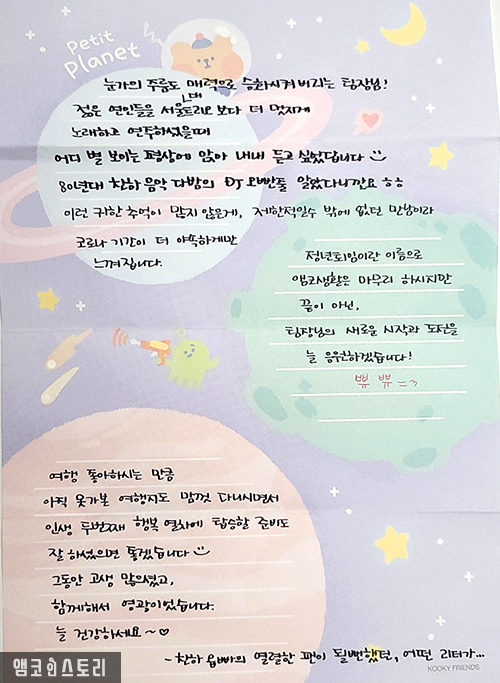 Petit
Planet
눈가의 주름도 매력으로 승화시켜버리는 팀장님!
젊은 연인들을 서울대트리오 보다 더 멋지게
노래하고 연주하셨을때
어디 별 보이는 평상에 앉아 내내 듣고 싶었답니다
80년대 찬하 음악 다방의 DJ 오빤줄 알았다니깐요 ㅎㅎ
이런 귀한 추억이 많지 않은게, 제한적일수 밖에 없던 만남이라
코로나 기간이 더 야속하게만
느껴집니다.
정년퇴임이란 이름으로
앰코생활은 마무리 하시지만
끝이 아닌,
팀장님의 새로운 시작과 도전을
늘 응원하겠습니다!
쀼 쀼 =3
여행 좋아하시는 만큼
아직 못가본 여행지도 맘껏 다니시면서
인생 두번째 행복 열차에 탑승할 준비도
잘 하셨으면 좋겠습니다
그동안 고생 많으셨고,
함께해서 영광이었습니다.
늘 건강하세요~♡
- 찬하 옵빠의 열렬한 팬이 될뻔했던, 어떤 리터가...
KOOKY FRIENDS
앰코인스토리